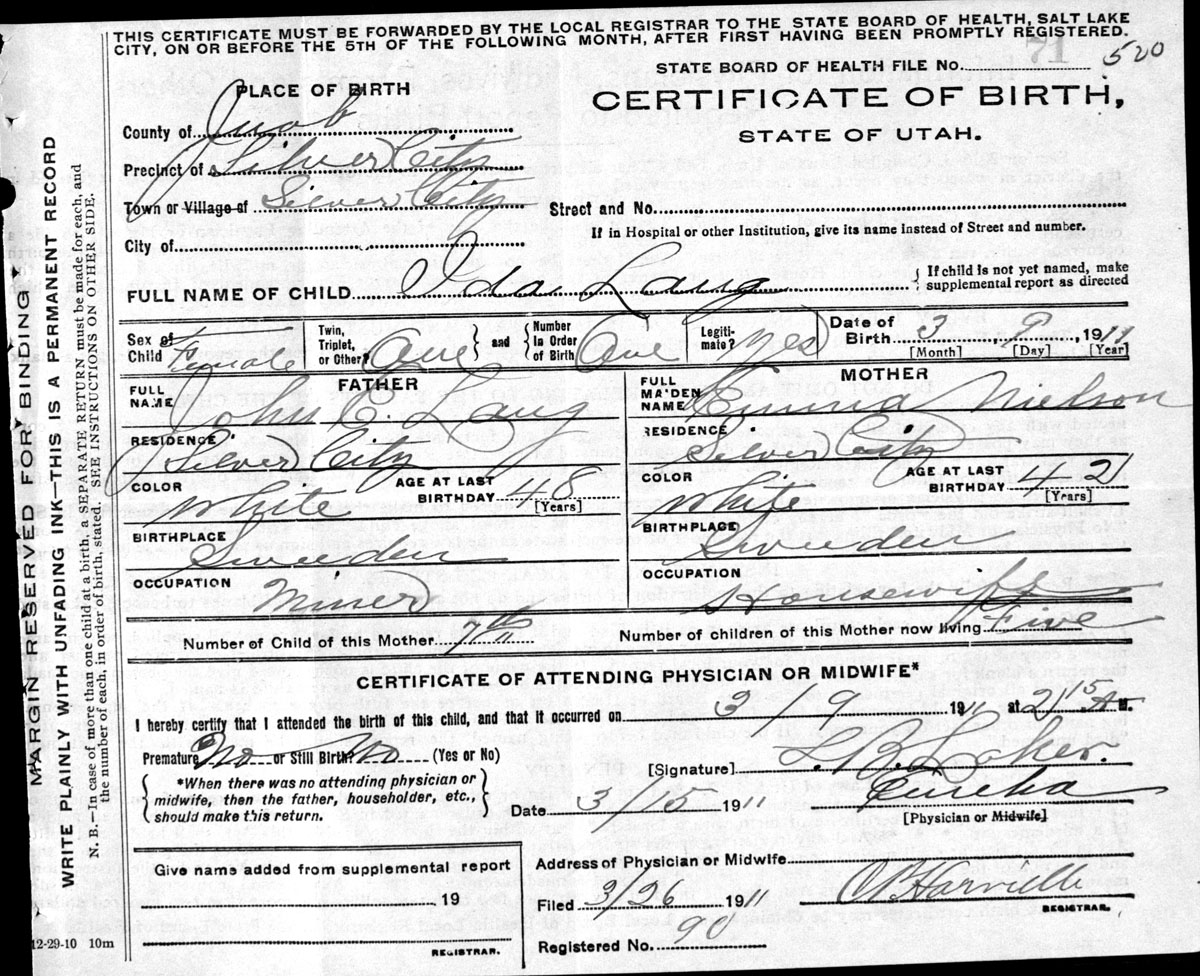 THIS CERTIFICATE MUST BE FORWARDED BY THE LOCAL REGISTRAR TO THE STATE BOARD OF HEALTH, SALT LAKE
CITY, ON OR BEFORE THE 5TH OF THE FOLLOWING MONTH, AFTER FIRST HAVING BEEN PROMPTLY REGISTERED.
STATE BOARD OF HEALTH FILE No. 520
PLACE OF BIRTH
CERTIFICATE OF BIRTH,
STATE OF UTAH.
County of Juab
Precinct of Silver City
Town or Village of Silver City
Street and No.
If in Hospital or other Institution, give its name instead of Street and number.
City of
FULL NAME OF CHILD Ida Laug
{ If child is not yet named, make
supplemental report as directed
Sex of Child Female
Twin, Triplet, or Other? One } and { Number In Order of Birth One
Legitimate? Yes
Date of Birth 3, 9, 1911
[Month] [Day] [Year]
FATHER
FULL NAME John E. Laug
RESIDENCE Silver City
COLOR White
AGE AT LAST BIRTHDAY 48 [Years]
BIRTHPLACE Sweden
OCCUPATION Miner
MOTHER
FULL MAIDEN NAME Emma Nielson
RESIDENCE Silver City
COLOR White
AGE AT LAST BIRTHDAY 42 [Years]
BIRTHPLACE Sweden
OCCUPATION Housewife
Number of Child of this Mother 7th
Number of children of this Mother now living Five
CERTIFICATE OF ATTENDING PHYSICIAN OR MIDWIFE*
I hereby certify that I attended the birth of this child, and that it occurred on 3/9 1911 at 2 15 A M.
Premature No or Still Birth? No (Yes or No)
{ *When there was no attending physician or
midwife, then the father, householder, etc.,
should make this return. }
[Signature]
Date 3/15 1911
Eureka
[Physician or Midwife]
Give name added from supplemental report
19
REGISTRAR.
Address of Physician or Midwife
Filed 3/26 1911
REGISTRAR.
Registered No. 90
12-29-10 10m
MARGIN RESERVED FOR BINDING
WRITE PLAINLY WITH UNFADING INK—THIS IS A PERMANENT RECORD
N. B.—In case of more than one child at a birth, a SEPARATE RETURN must be made for each, and
the number of each, in order of birth, stated. SEE INSTRUCTIONS ON OTHER SIDE.